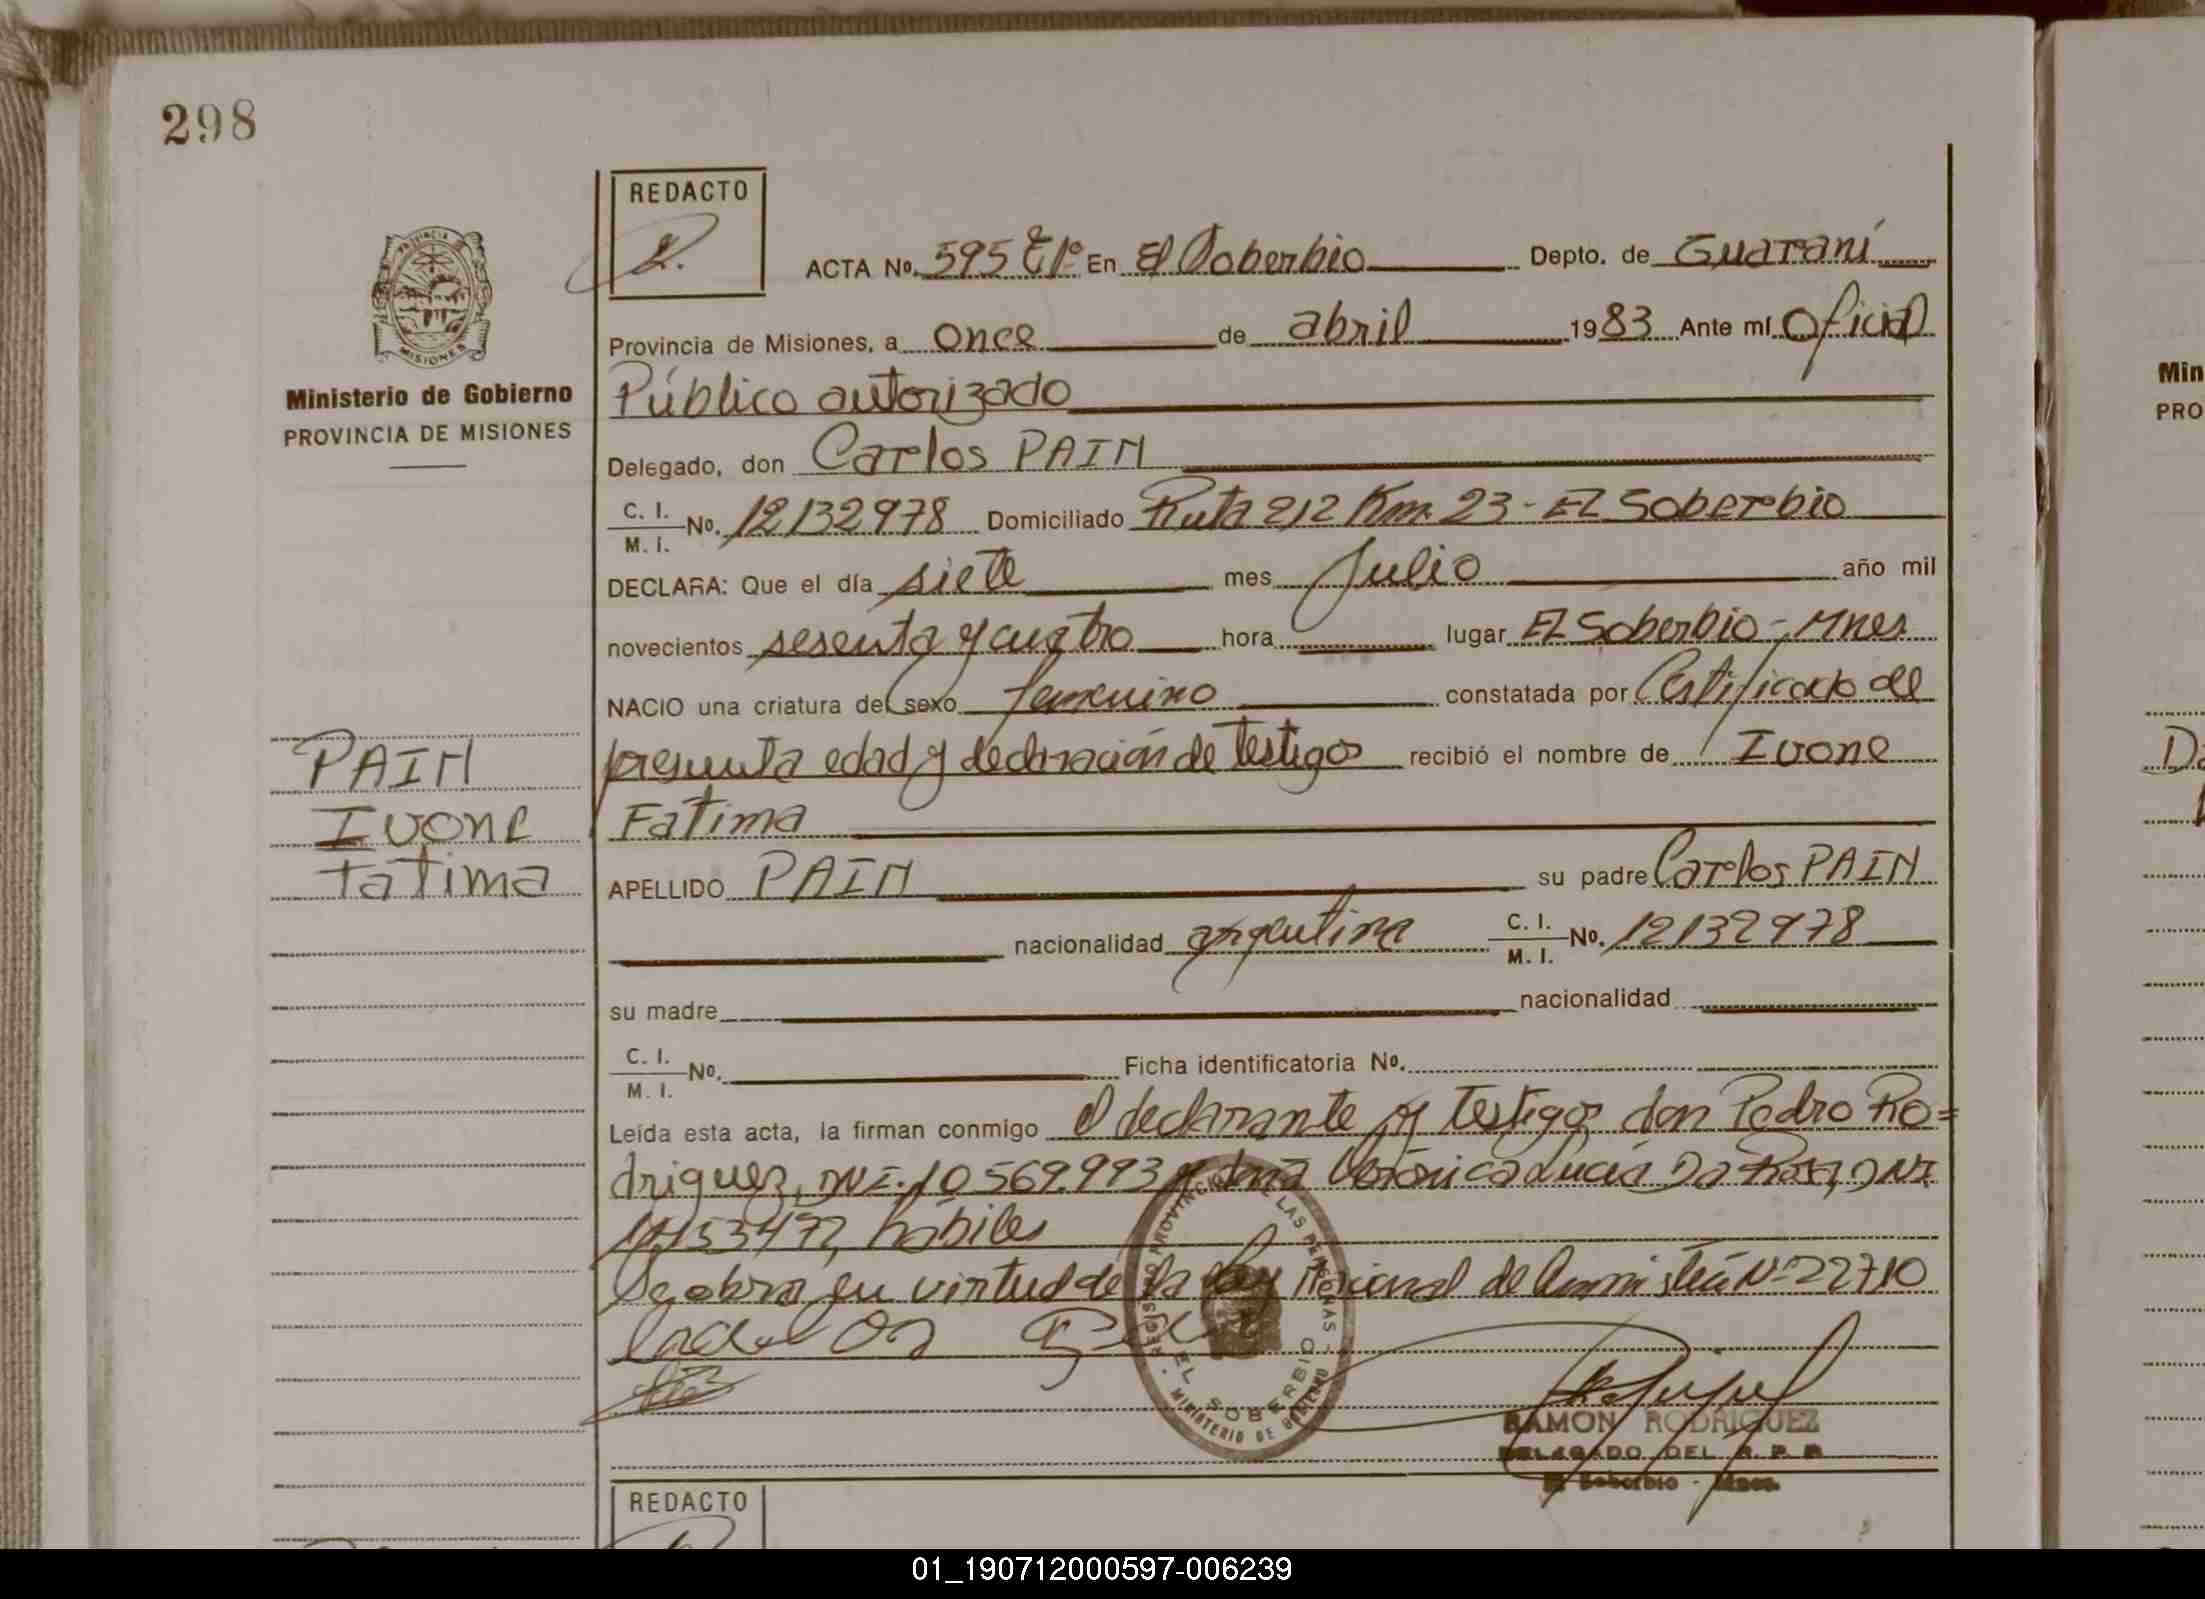 298
REDACTO
ACTA No. 595 T1º En El Soberbio Depto. de Guaraní
PROVINCIA
MISIONES
Provincia de Misiones, a once de abril 1983 Ante mí Oficial
Ministerio de Gobierno
PROVINCIA DE MISIONES
Público autorizado
Delegado, don Carlos PAIM
C. I.
M. I. No. 12132978 Domiciliado Ruta 212 Km. 23 - El Soberbio
DECLARA: Que el día siete mes Julio año mil
novecientos sesenta y cuatro hora lugar El Soberbio - Mnes
NACIO una criatura del sexo femenino constatada por Certificado de
presunta edad y declaración de testigos recibió el nombre de Ivone
Fatima
PAIM
Ivone
Fatima
APELLIDO PAIM su padre Carlos PAIM
nacionalidad argentina C. I.
M. I. No. 12132978
su madre nacionalidad
C. I.
M. I. No. Ficha identificatoria No.
Leída esta acta, la firman conmigo el declarante y testigos don Pedro Ro=
driguez, DNI. 10.569.993 y doña Verónica Lucía Da Rosa, DNI.
hábiles
Se labra en virtud de la Ley Nacional de Amnistía Nº 22710
REGISTRO PROVINCIAL DE LAS PERSONAS
EL SOBERBIO
MINISTERIO DE GOBIERNO
RAMON RODRIGUEZ
DELEGADO DEL R. P. P.
El Soberbio - Mnes.
REDACTO
Min
PRO
01_190712000597-006239